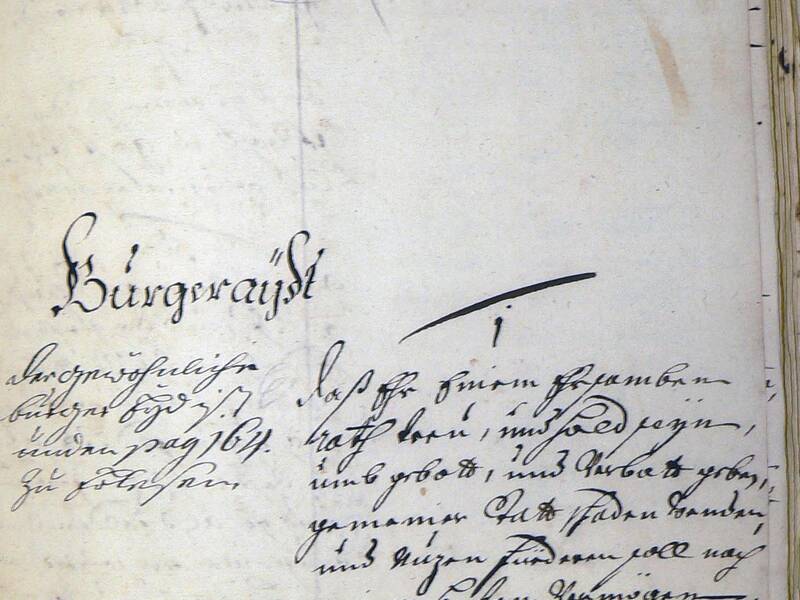 Burgeraÿdt
der gewöhnliche
burger Eyd ist
unden pag 164.
zu Erlesen.
1
daß Ihr Einem Ehrsamben
rath treu, und hold seÿn,
umb gebott, und Verbott geben,
gemeiner Statt schaden wenden,
und nuzen fürderen soll nach
Vermögen